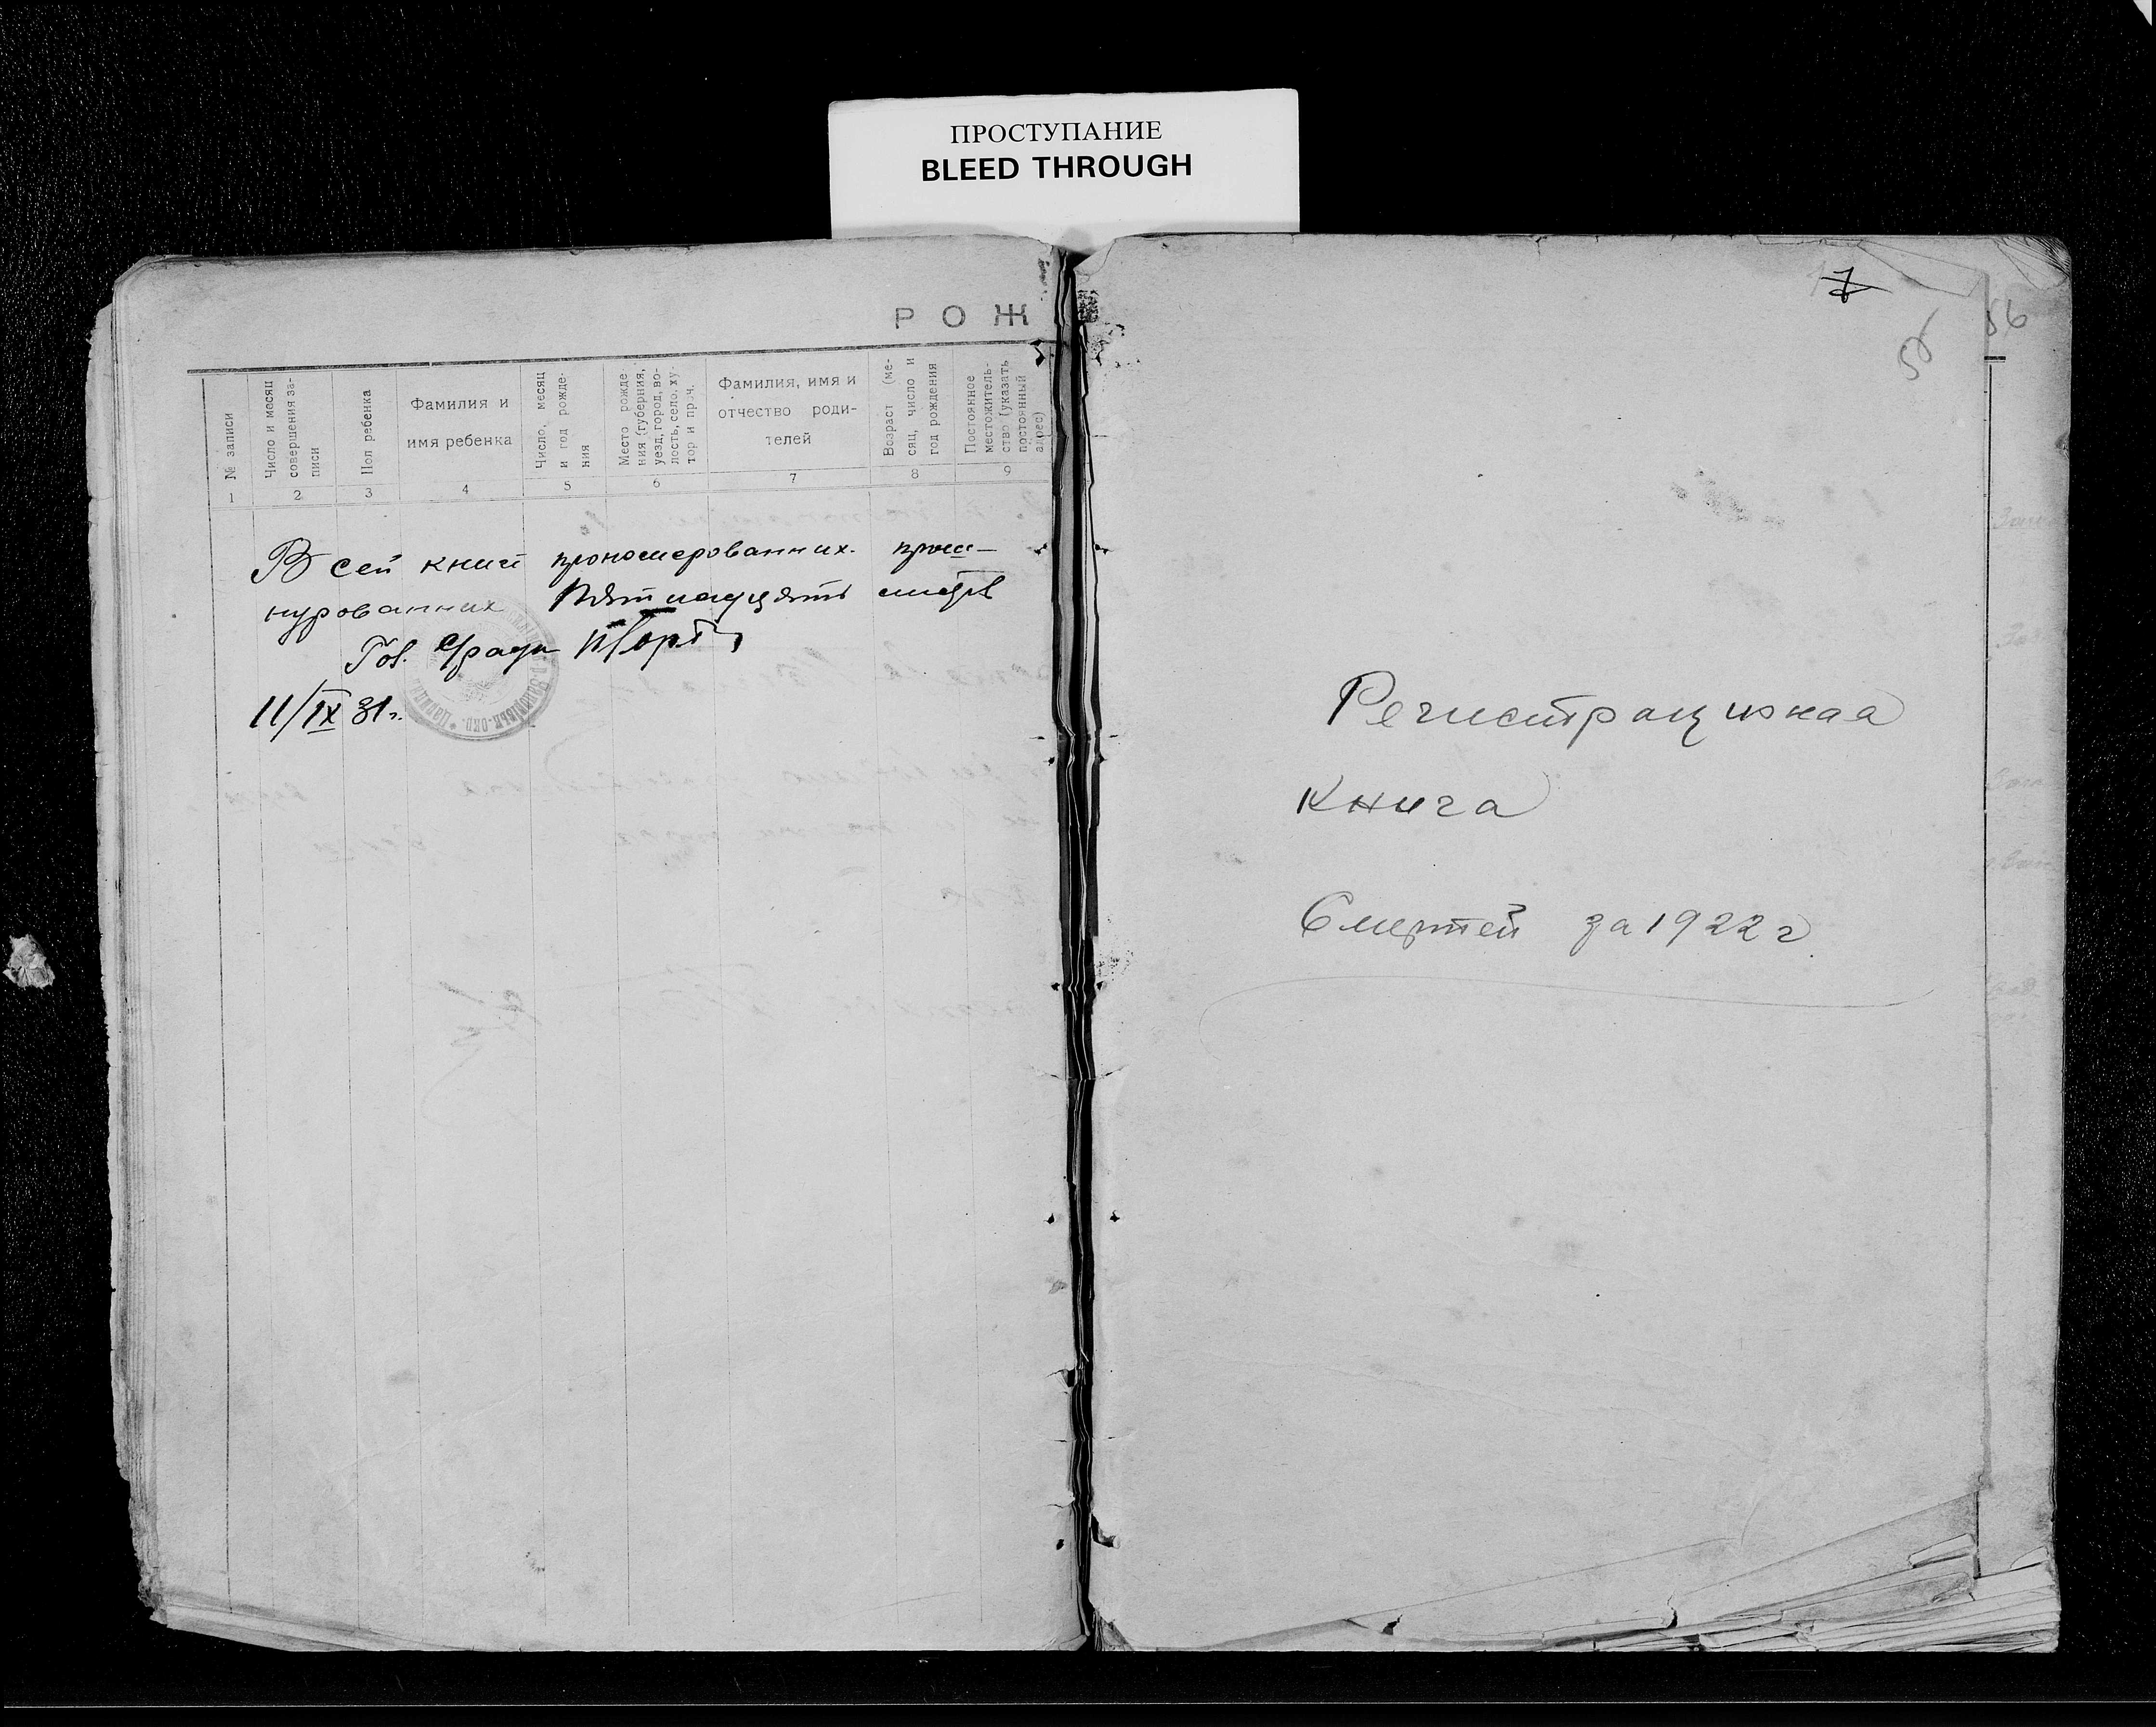 ПРОСТУПАНИЕ
BLEED THROUGH
РОЖ
№ записи
Число и месяц
совершения за-
писи
Пол ребенка
Фамилия и
имя ребенка
Число, месяц
и год рожде-
ния
Место рожде
ния (губерния,
уезд, город, во-
лость, село, ху-
тор и проч.
Фамилия, имя и
отчество роди-
телей
Возраст (ме-
сяц, число и
год рождения
Постоянное
местожитель-
ство (указать
постоянный
адрес)
1 2 3 4 5 6 7 8 9
В сей книге прономерованных прош-
нурованных Пятнадцять листов
Гол. с/ради
11/IX 31г.
7
56
56
Регистрационая
Книга
Смертей за 1922 г